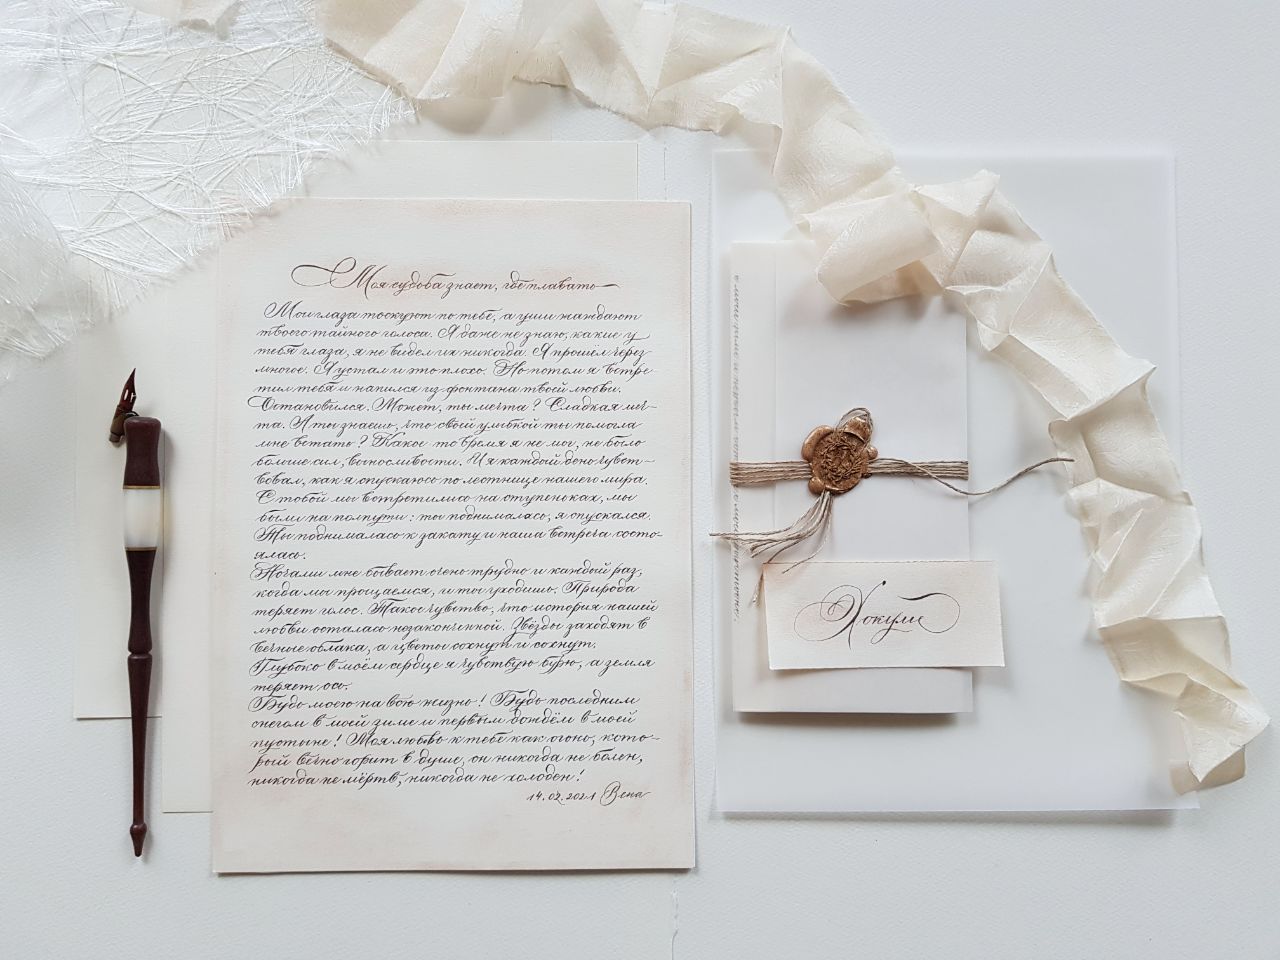 Моя судьба знает, где плавать
Мои глаза тоскуют по тебе, а уши жаждают
твоего тайного голоса. Я даже не знаю, какие у
тебя глаза, я не видел их никогда. Я прошёл через
многое. Я устал и это плохо. Но потом я встре-
тил тебя и напился из фонтана твоей любви.
Остановился. Может, ты мечта? Сладкая меч-
та. А ты знаешь, что своей улыбкой ты помогла
мне встать? Какое-то время я не мог, не было
больше сил, выносливости. И я каждый день чувст-
вовал, как я опускаюсь по лестнице нашего мира.
С тобой мы встретились на ступеньках, мы
были на полпути: ты поднималась, я опускался.
Ты поднималась к закату и наша встреча состо-
ялась.
Ночами мне бывает очень трудно и каждый раз,
когда мы прощаемся, и ты уходишь. Природа
теряет голос. Такое чувство, что история нашей
любви осталась незаконченной. Звёзды заходят в
вечные облака, а цветы сохнут и сохнут.
Глубоко в моём сердце я чувствую бурю, а земля
теряет ось.
Будь моею на всю жизнь! Будь последним
снегом в моей зиме и первым дождём в моей
пустыне! Моя любовь к тебе как огонь, кото-
рый вечно горит в душе, он никогда не болен,
никогда не мёртв, никогда не холоден!
14.02.2021 Вена
Хокули